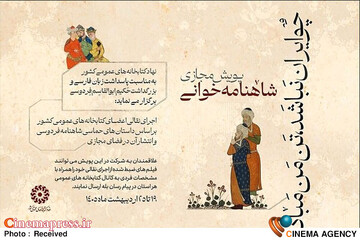 چو ایران نباشد تن من مباد
پویش مجازی
شاهنامه‌خوانی
نهاد کتابخانه‌های عمومی کشور
به مناسبت پاسداشت زبان فارسی و
بزرگداشت حکیم ابوالقاسم فردوسی
برگزار می‌نماید:
اجرای نقالی اعضای کتابخانه‌های عمومی کشور
بر اساس داستان‌های حماسی شاهنامه فردوسی
و انتشار آن در فضای مجازی
علاقمندان به شرکت در این پویش می توانند
فیلم‌های ضبط شده از اجرای نقالی خود را همراه با
مشخصات فردی به کانال کتابخانه های عمومی
هر استان در پیام رسان بله ارسال نمایند.
۱۹ تا ۲۵ اردیبهشت ماه ۱۴۰۰
Cinemapress.ir
Photo : Received
CINEMA AGENCY